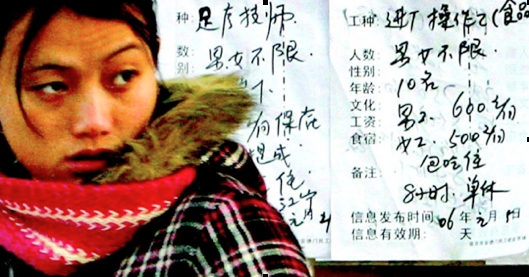 种: 足疗技师
数: 男女不限.
别:
保底
提成
住
江宁
工种: 进厂操作工(食品
人数: 男女不限.
性别:
年龄: 10名
文化: 男工: 600/月
工资:
食宿: 女工. 500/月
包吃住
备注:
8小时. 单休
信息发布时间 06年元月 日
信息有效期: 天